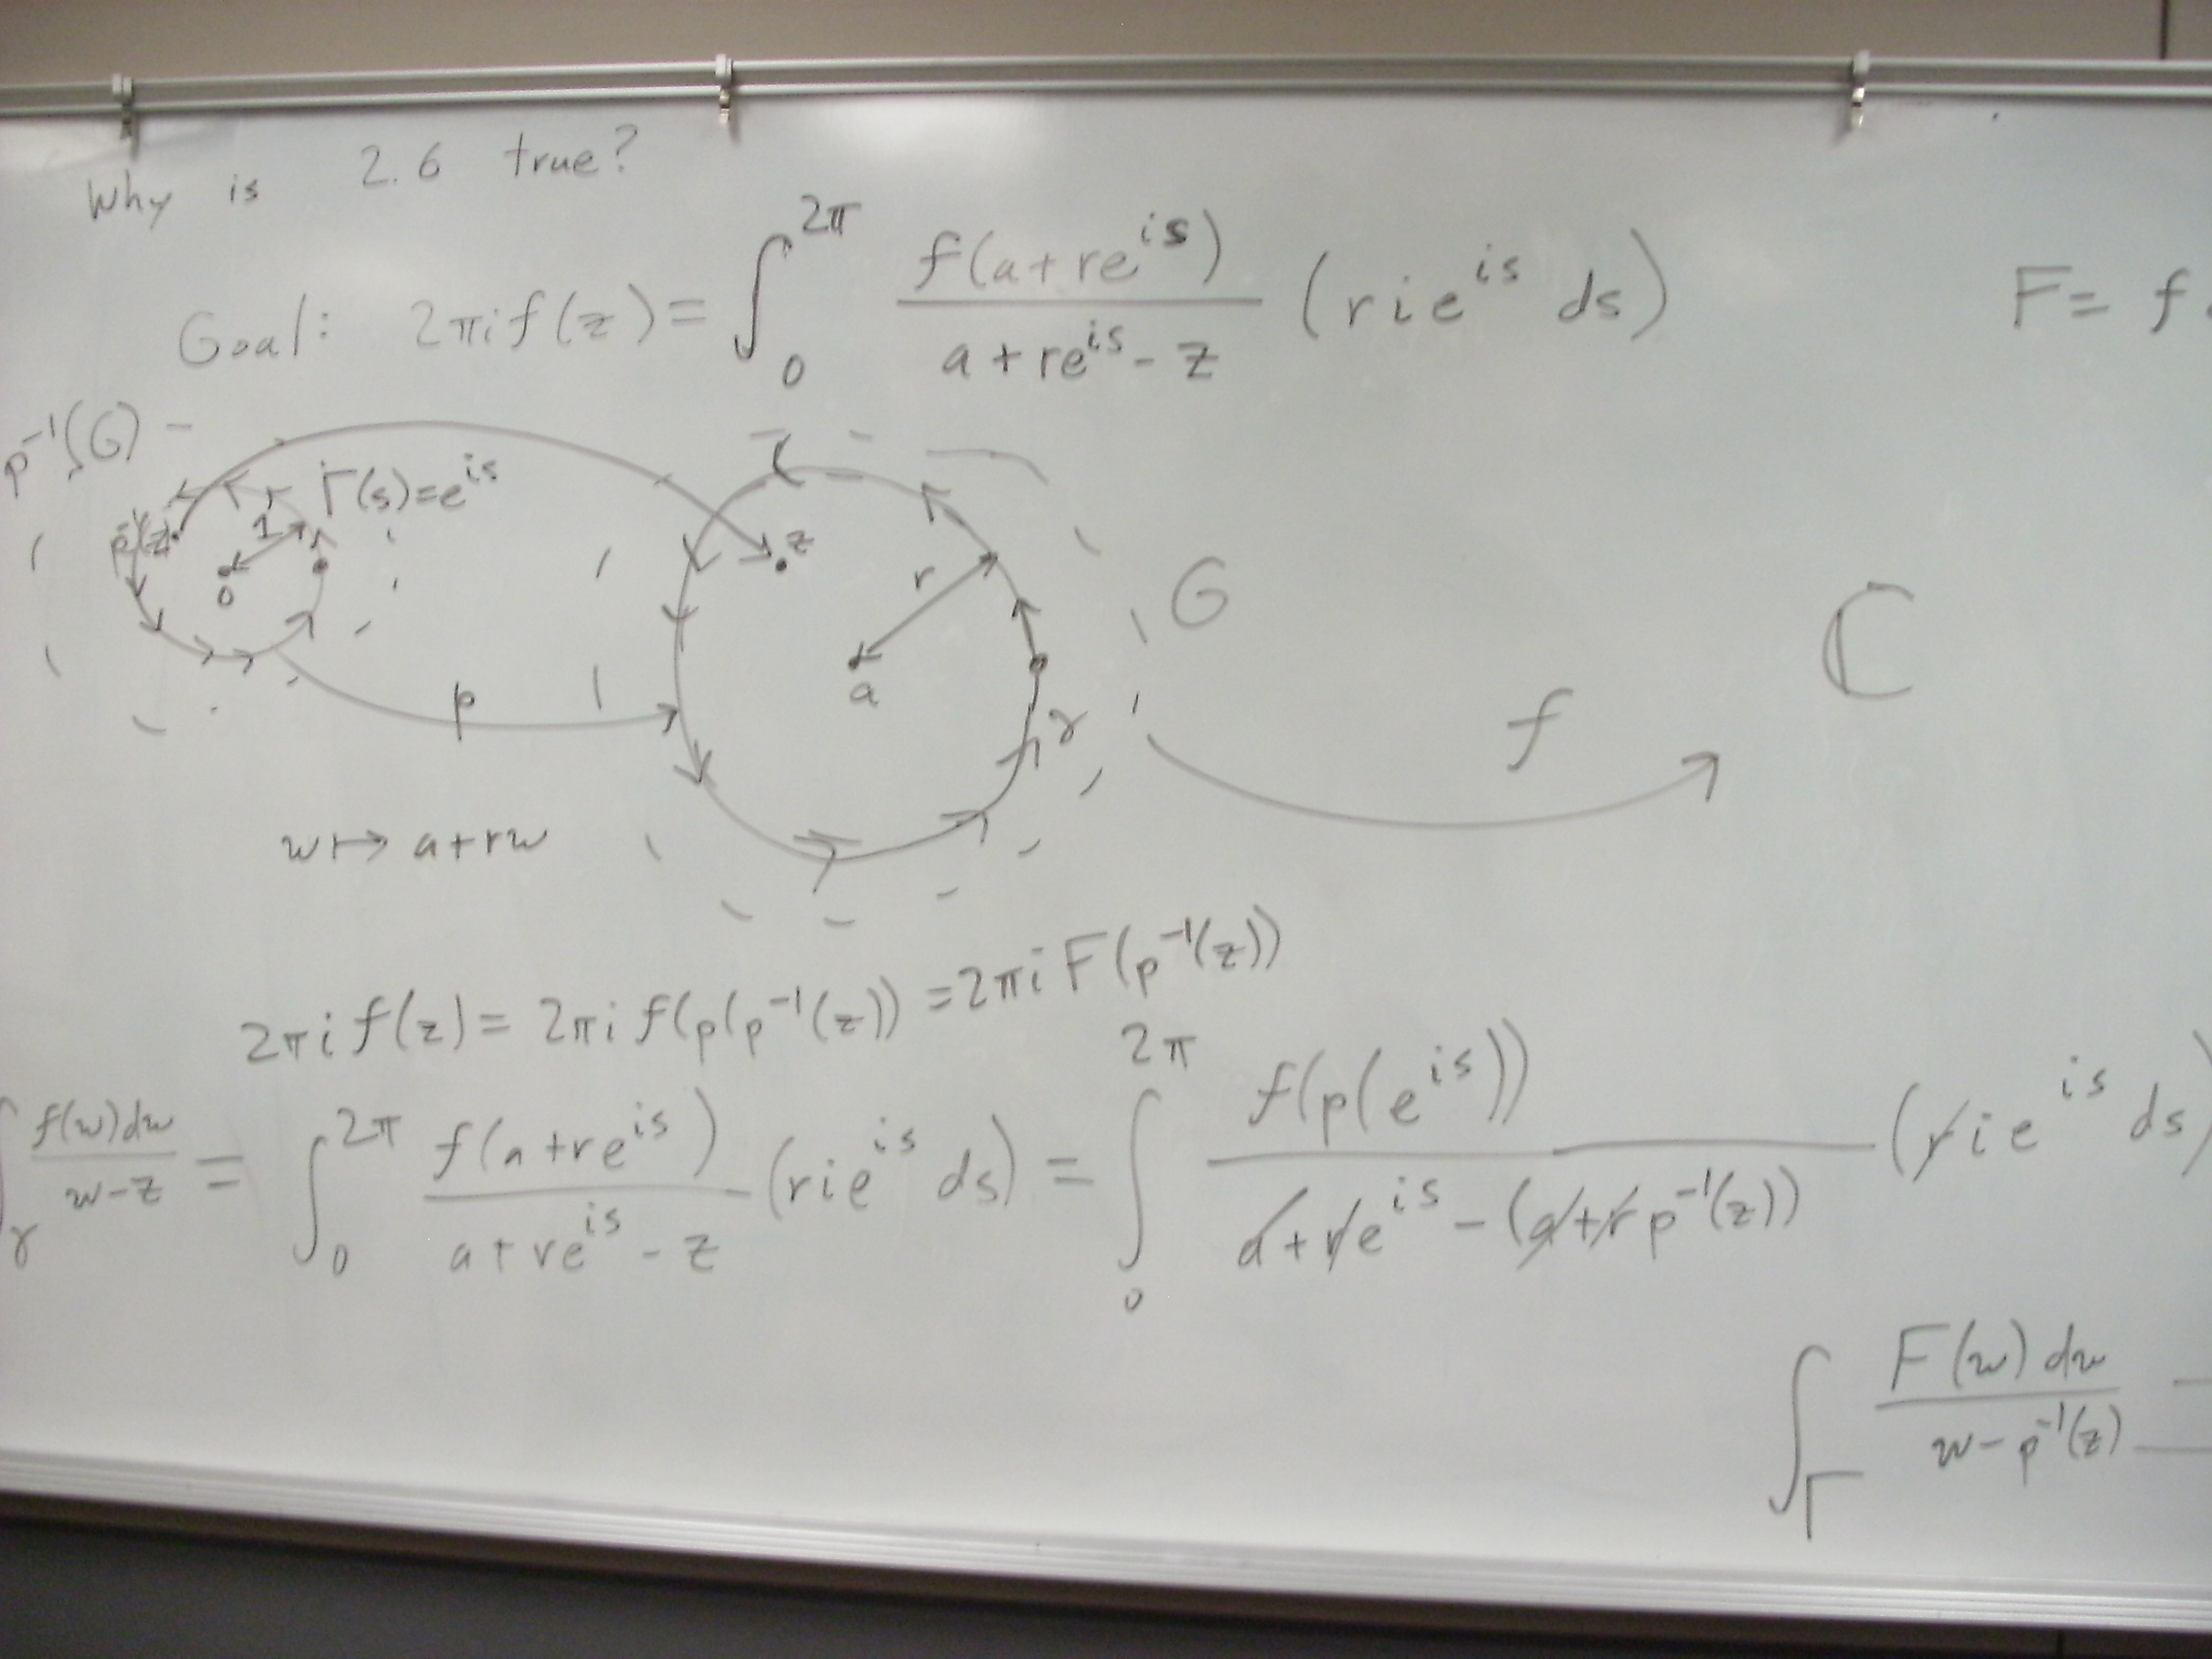 Why is 2.6 true?
Goal: 2πi f(z) = ∫₀^{2π} f(a+re^{is}) / (a+re^{is} - z) (rie^{is} ds)
F = f
p⁻¹(G)
Γ(s)=e^{is}
p⁻¹(z)
1
0
z
r
a
G
γ
p
f
ℂ
w ↦ a+rw
2πi f(z) = 2πi f(p(p⁻¹(z)) = 2πi F(p⁻¹(z))
∫_γ f(w)dw / (w-z) = ∫₀^{2π} f(a+re^{is}) / (a+re^{is} - z) (rie^{is} ds) = ∫₀^{2π} f(p(e^{is})) / (a+re^{is} - (a+r p⁻¹(z))) (rie^{is} ds)
∫_Γ F(w) dw / (w - p⁻¹(z))